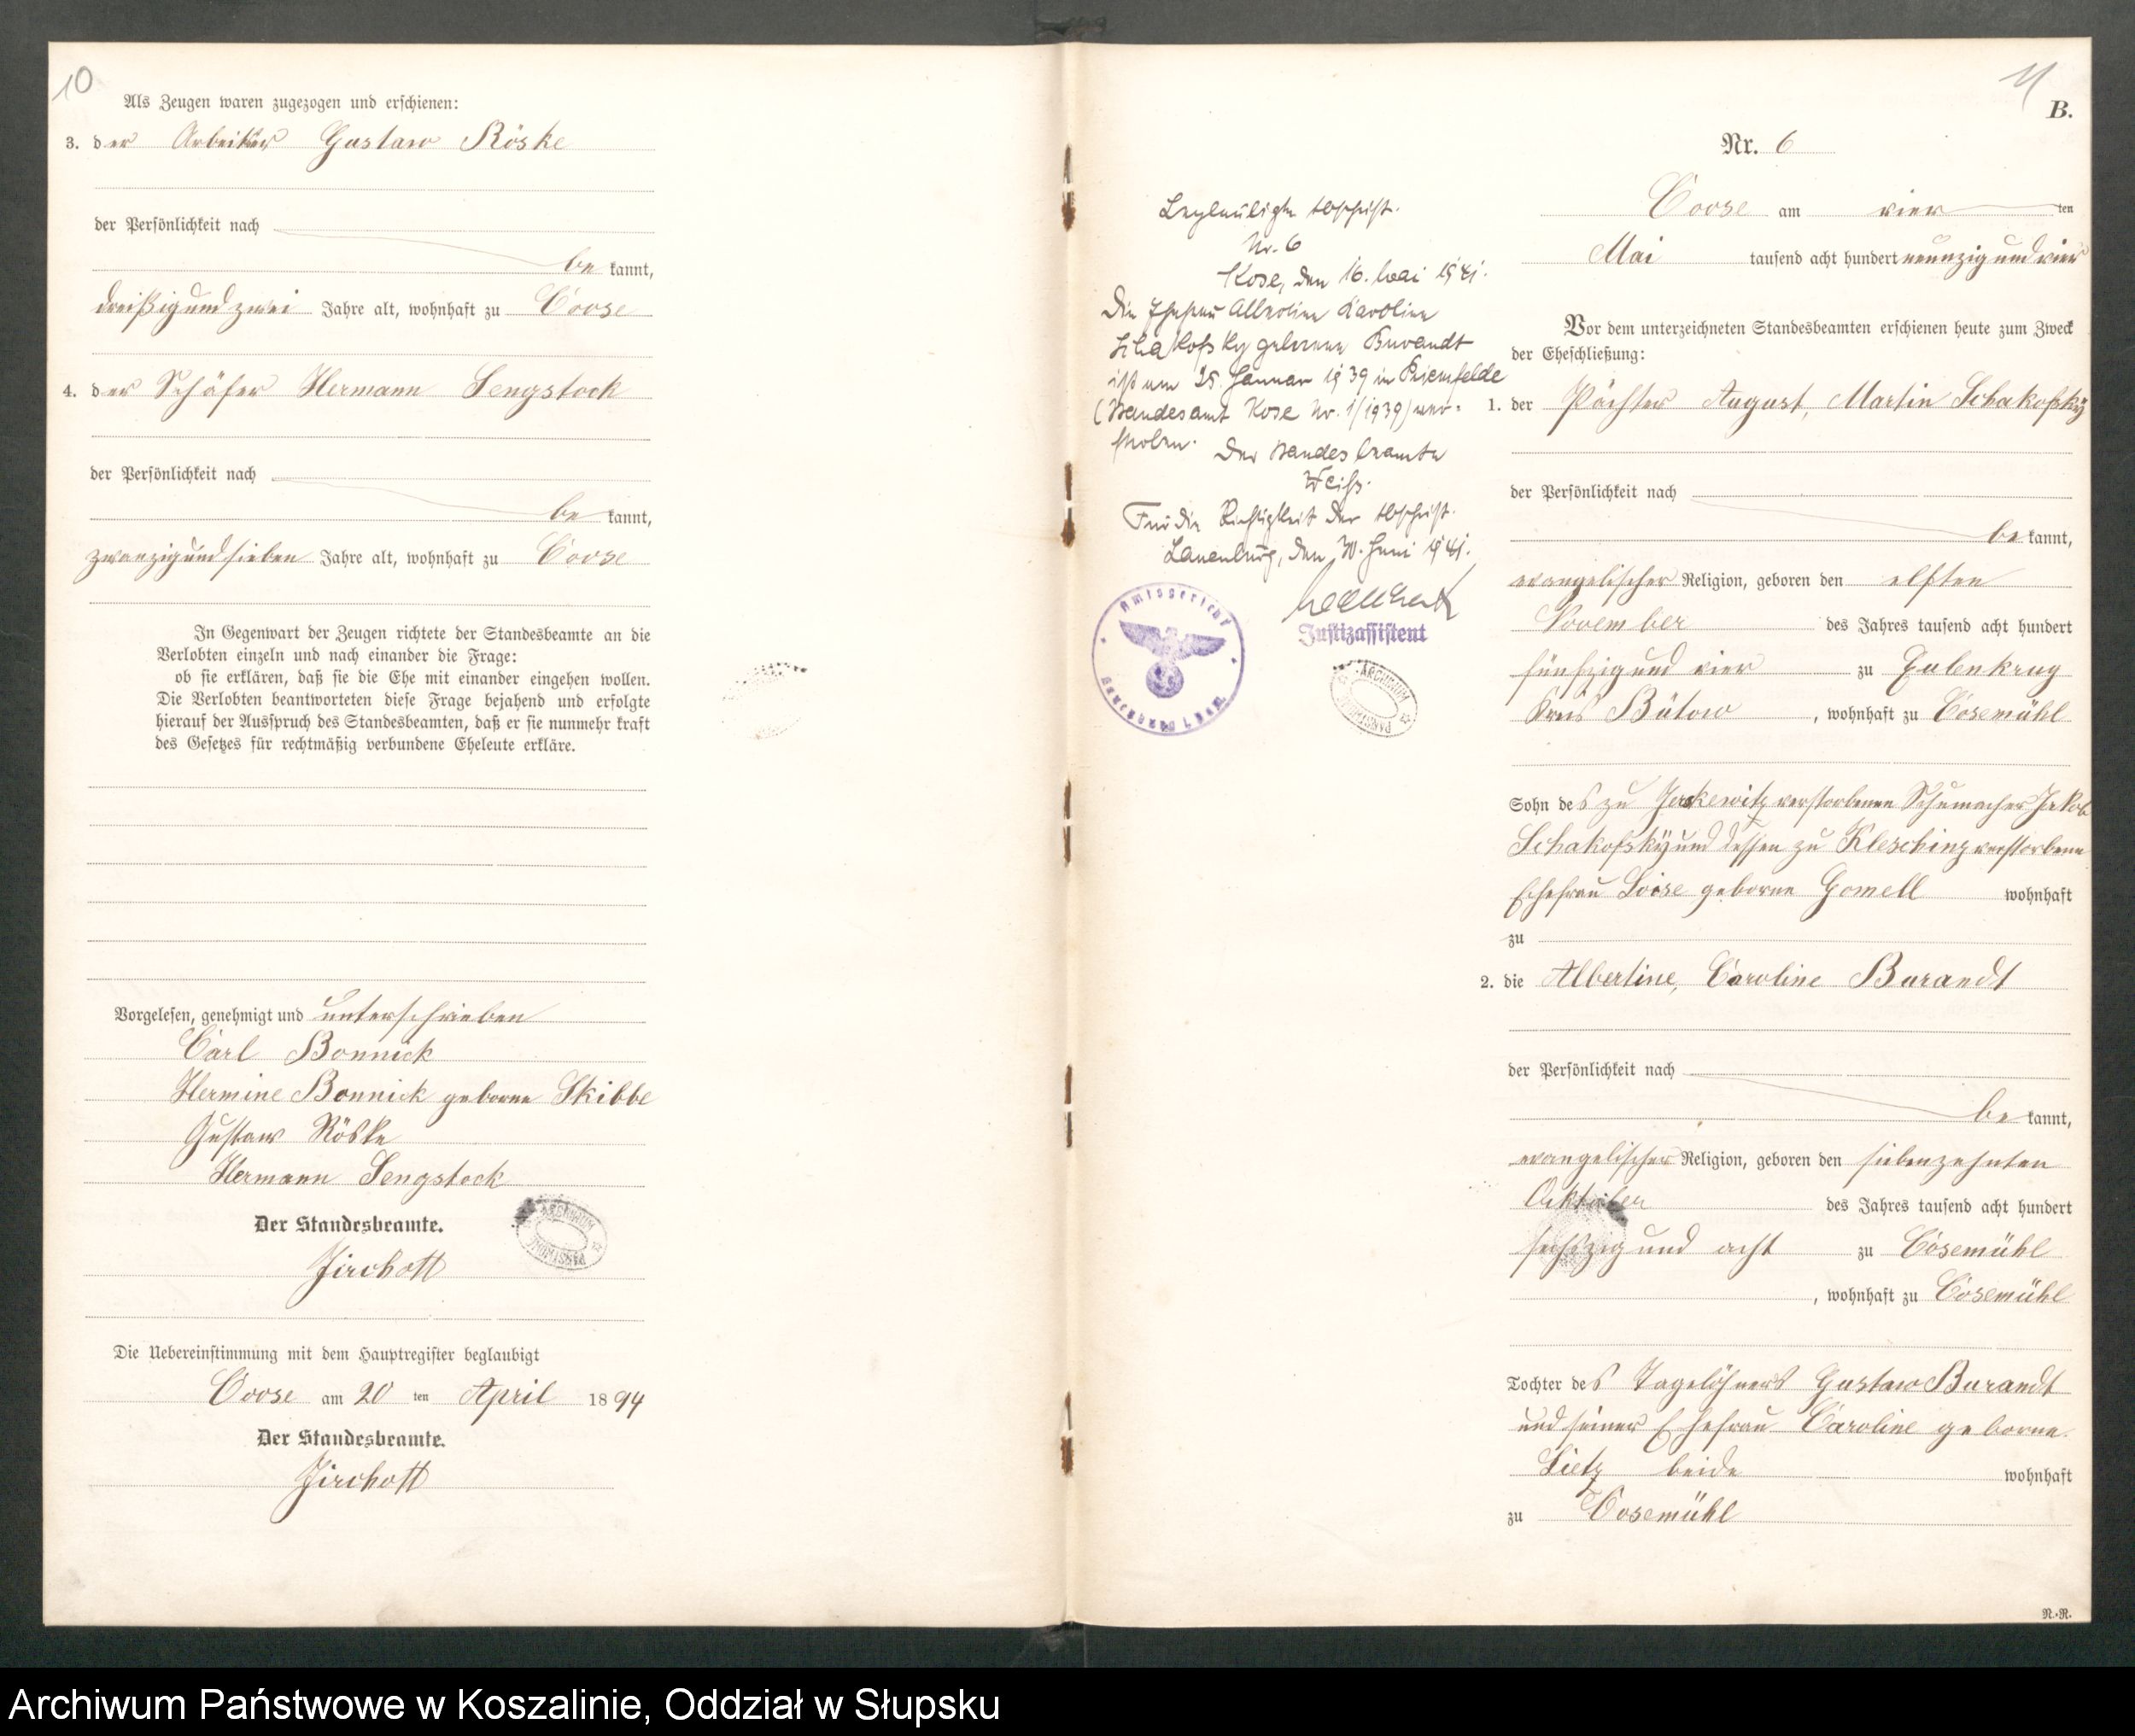 10
Als Zeugen waren zugezogen und erschienen:
3. der Arbeiter Gustaw Röske
der Persönlichkeit nach
be kannt,
dreißig und zwei Jahre alt, wohnhaft zu Coose
4. der Schäfer Hermann Sengstock
der Persönlichkeit nach
be kannt,
zwanzig und sieben Jahre alt, wohnhaft zu Coose
In Gegenwart der Zeugen richtete der Standesbeamte an die
Verlobten einzeln und nach einander die Frage:
ob sie erklären, daß sie die Ehe mit einander eingehen wollen.
Die Verlobten beantworteten diese Frage bejahend und erfolgte
hierauf der Ausspruch des Standesbeamten, daß er sie nunmehr kraft
des Gesetzes für rechtmäßig verbundene Eheleute erkläre.
Vorgelesen, genehmigt und unterschrieben
Carl Bonnick
Hermine Bonnick geborne Skibbe
Gustaw Röske
Hermann Sengstock
Der Standesbeamte.
Zirchott
Die Uebereinstimmung mit dem Hauptregister beglaubigt
Coose am 20 ten April 1894
Der Standesbeamte.
Zirchott
Beglaubigte Abschrift.
Nr. 6
Kose, den 16. Mai 1941.
Die Ehefrau Albertine Karoline
Schakofsky geborene Burandt
ist am 25. Januar 1939 in Friemfelde
(Standesamt Kose Nr. 1/1939) ver-
storben.
Der Standesbeamte
Weiß.
Für die Richtigkeit der Abschrift.
Lauenburg, den 30. Juni 1941.
Justizassistent
Amtsgericht
ARCHIWUM
11
B.
Nr. 6
Coose am vier ten
Mai tausend acht hundert neunzig und vier
Vor dem unterzeichneten Standesbeamten erschienen heute zum Zweck
der Eheschließung:
1. der Pächter August, Martin Schakofsky
der Persönlichkeit nach
be kannt,
evangelischer Religion, geboren den elften
November des Jahres tausend acht hundert
fünfzig und vier zu Eulenkrug
Kreis Bütow, wohnhaft zu Cosemühl
Sohn des zu verstorbenen Schumacher Jakob
Schakofsky und dessen zu Kleschinz verstorbene
Ehefrau Loise geborne Gomell wohnhaft
zu
2. die Albertine, Caroline Burandt
der Persönlichkeit nach
be kannt,
evangelischer Religion, geboren den siebenzehnten
Oktober des Jahres tausend acht hundert
sechszig und acht zu Cosemühl
, wohnhaft zu Cosemühl
Tochter des Tagelöhners Gustaw Burandt
und seiner Ehefrau Caroline geborne
Lietz beide wohnhaft
zu Cosemühl
N.-R.
Archiwum Państwowe w Koszalinie, Oddział w Słupsku